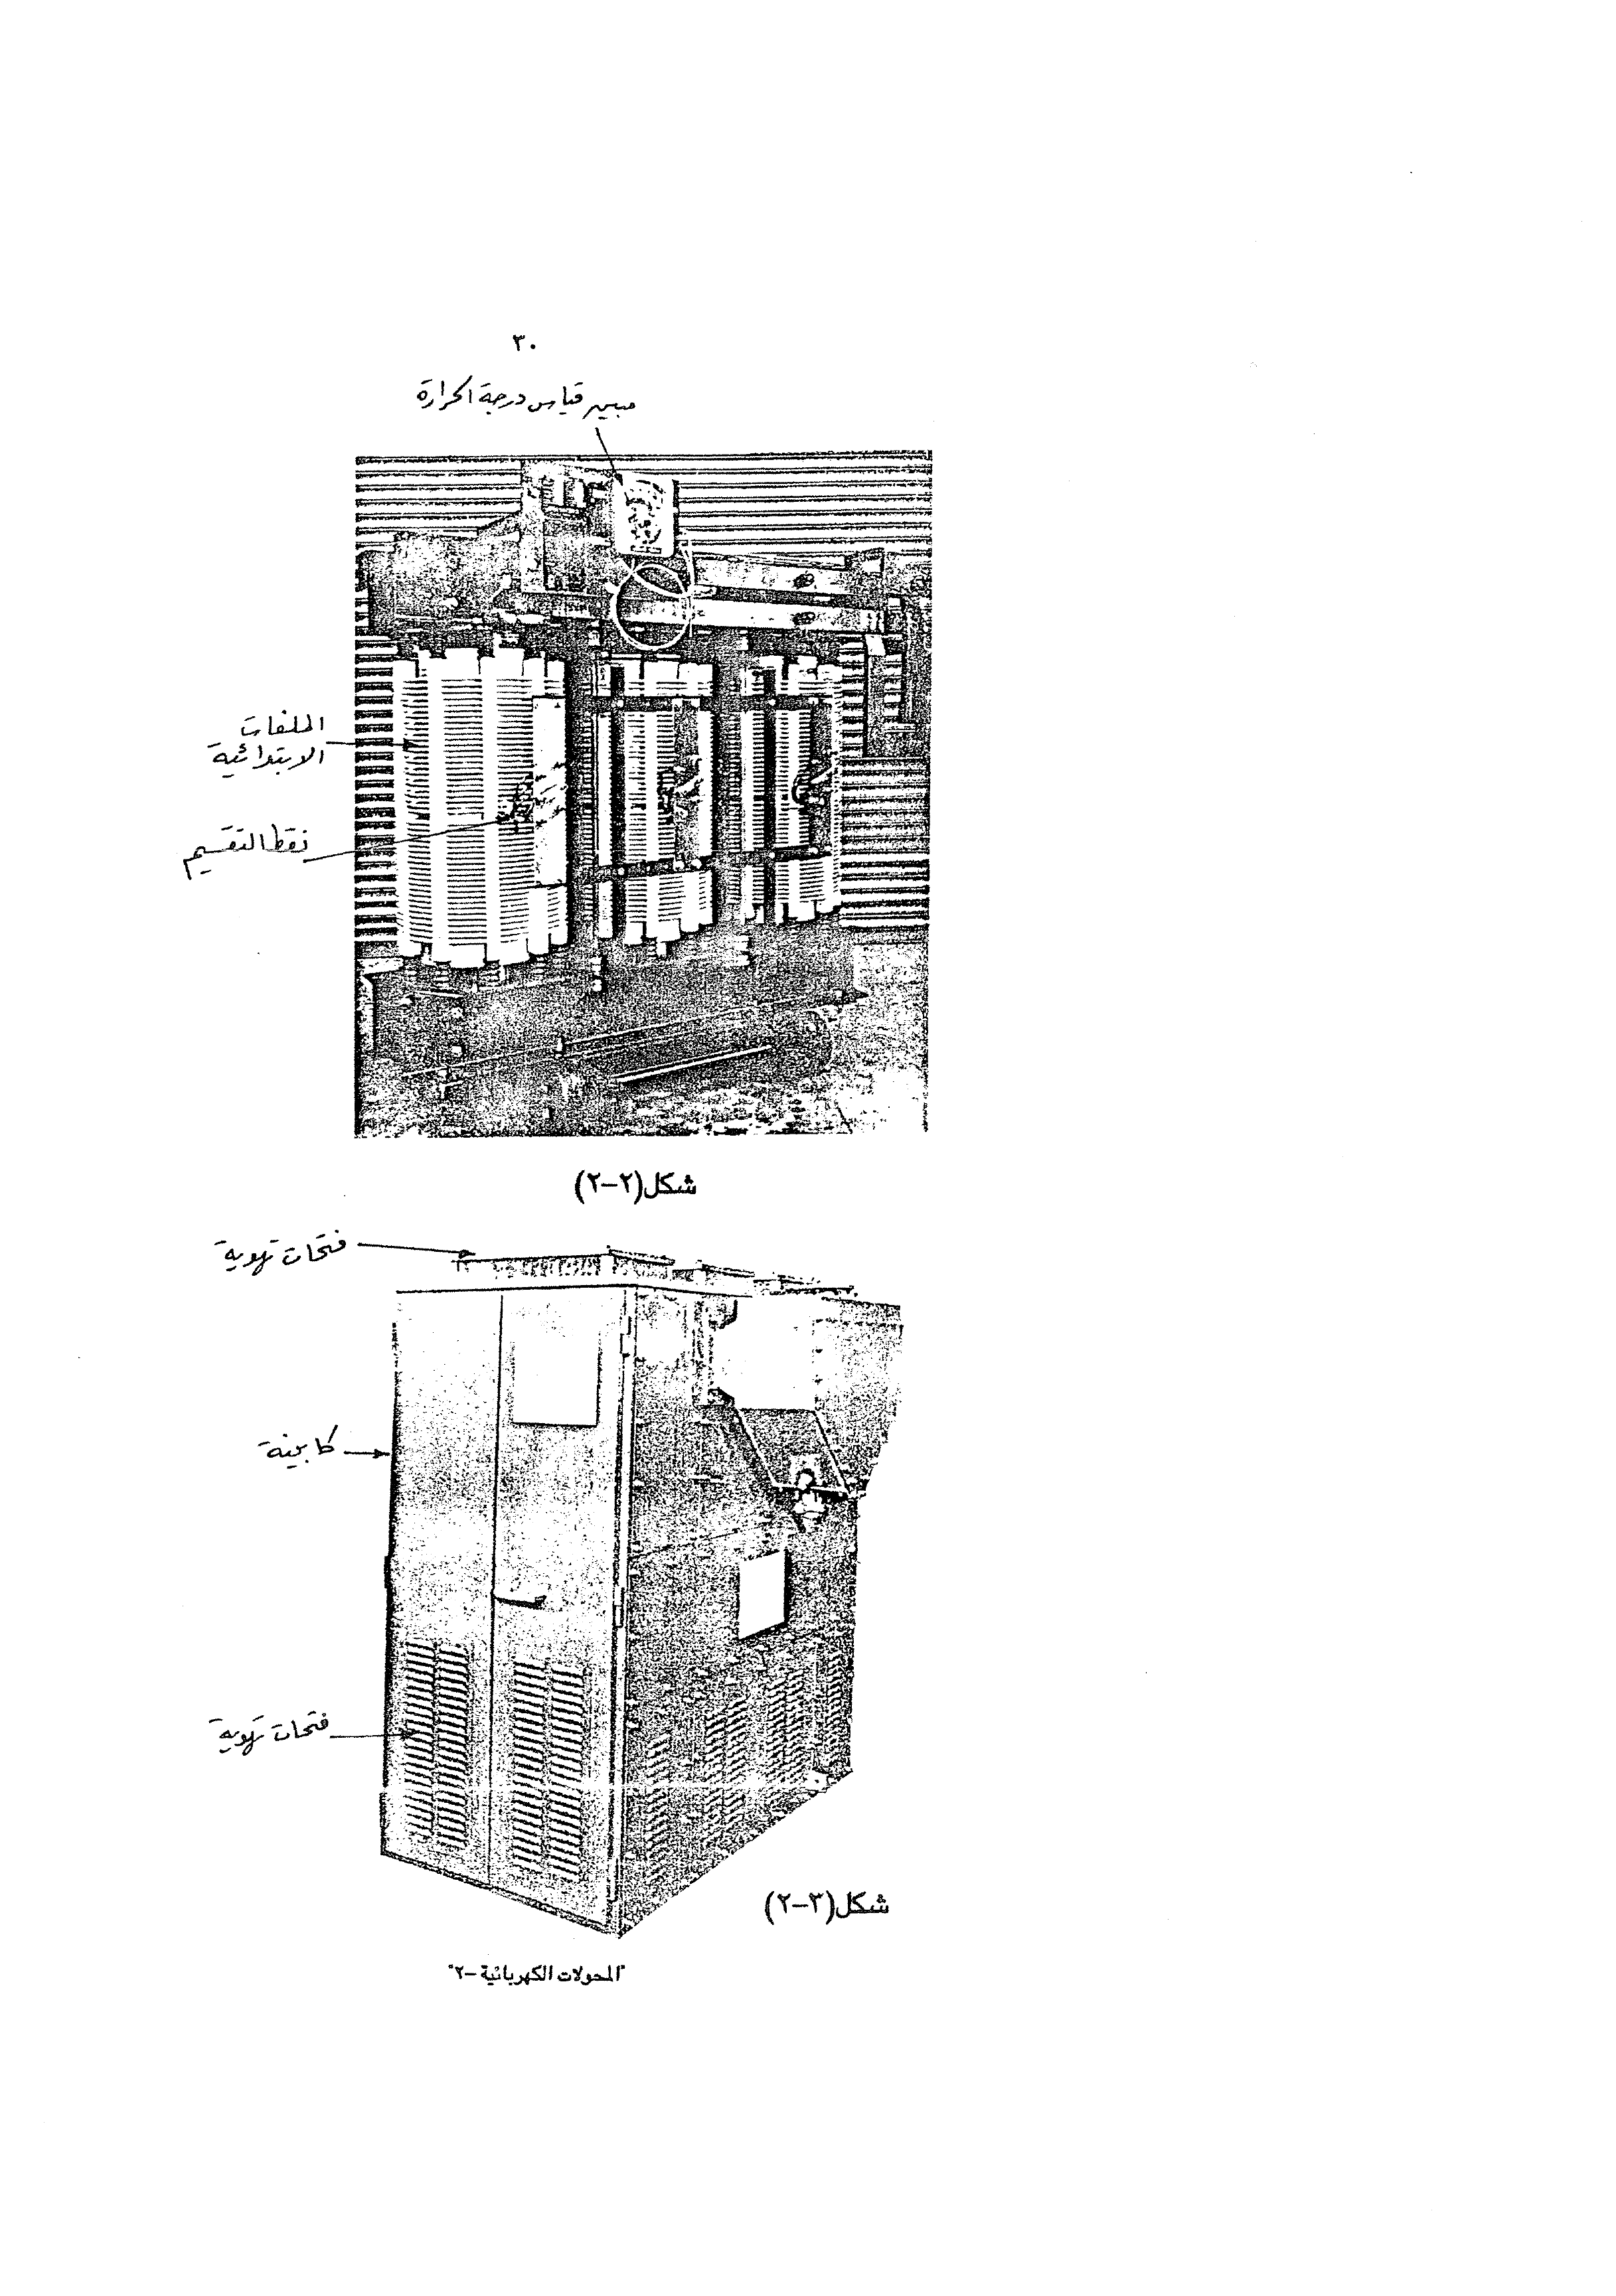 ٣٠
مبين قياس درجة الحرارة
الملفات
الابتدائية
نقط التقسيم
شكل(٢-٢)
فتحات تهوية
كابينة
فتحات تهوية
شكل(٣-٢)
"المحولات الكهربائية -٢"